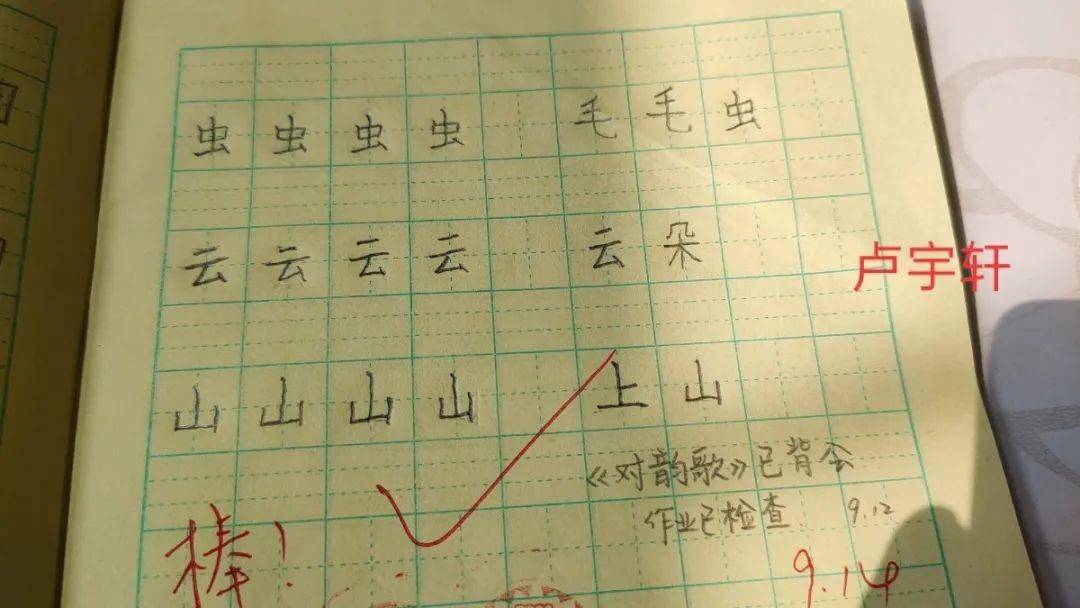 虫 虫 虫 虫 毛 毛 虫
云 云 云 云 云 朵
卢宇轩
山 山 山 山 上 山
《对韵歌》已背会
作业已检查 9.12
棒!
9.14